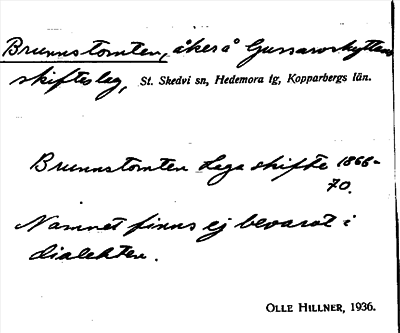 Brunnstomten, åker å Gussarvshyttans
skifteslag, St. Skedvi sn, Hedemora tg, Kopparbergs län.
Brunnstomten Laga skifte 1868-
70.
Namnet finns ej bevarat i
dialekten.
OLLE HILLNER, 1936.